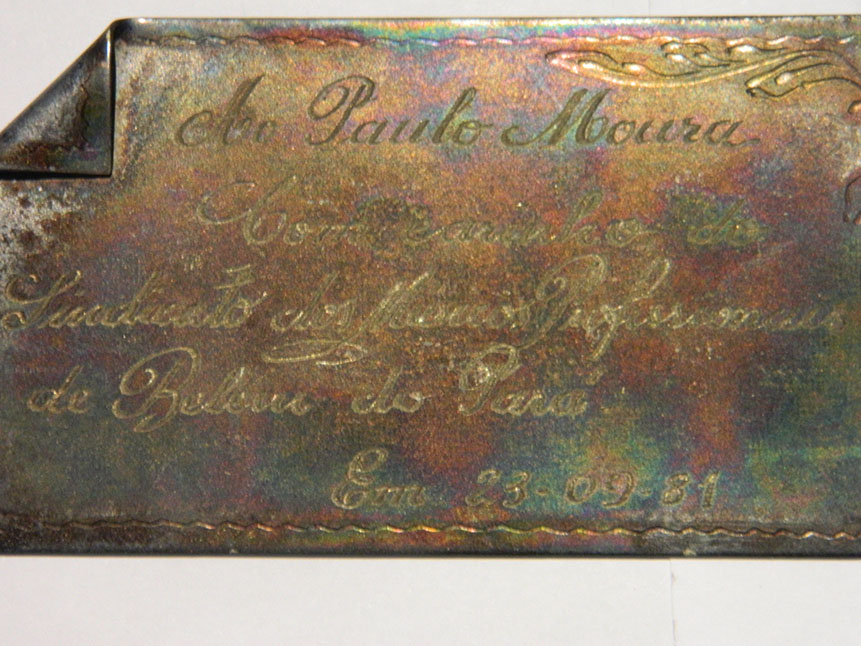 Ao Paulo Moura
do
Sindicato dos Músicos Profissionais
de Belem do Pará
Em 23-09-81